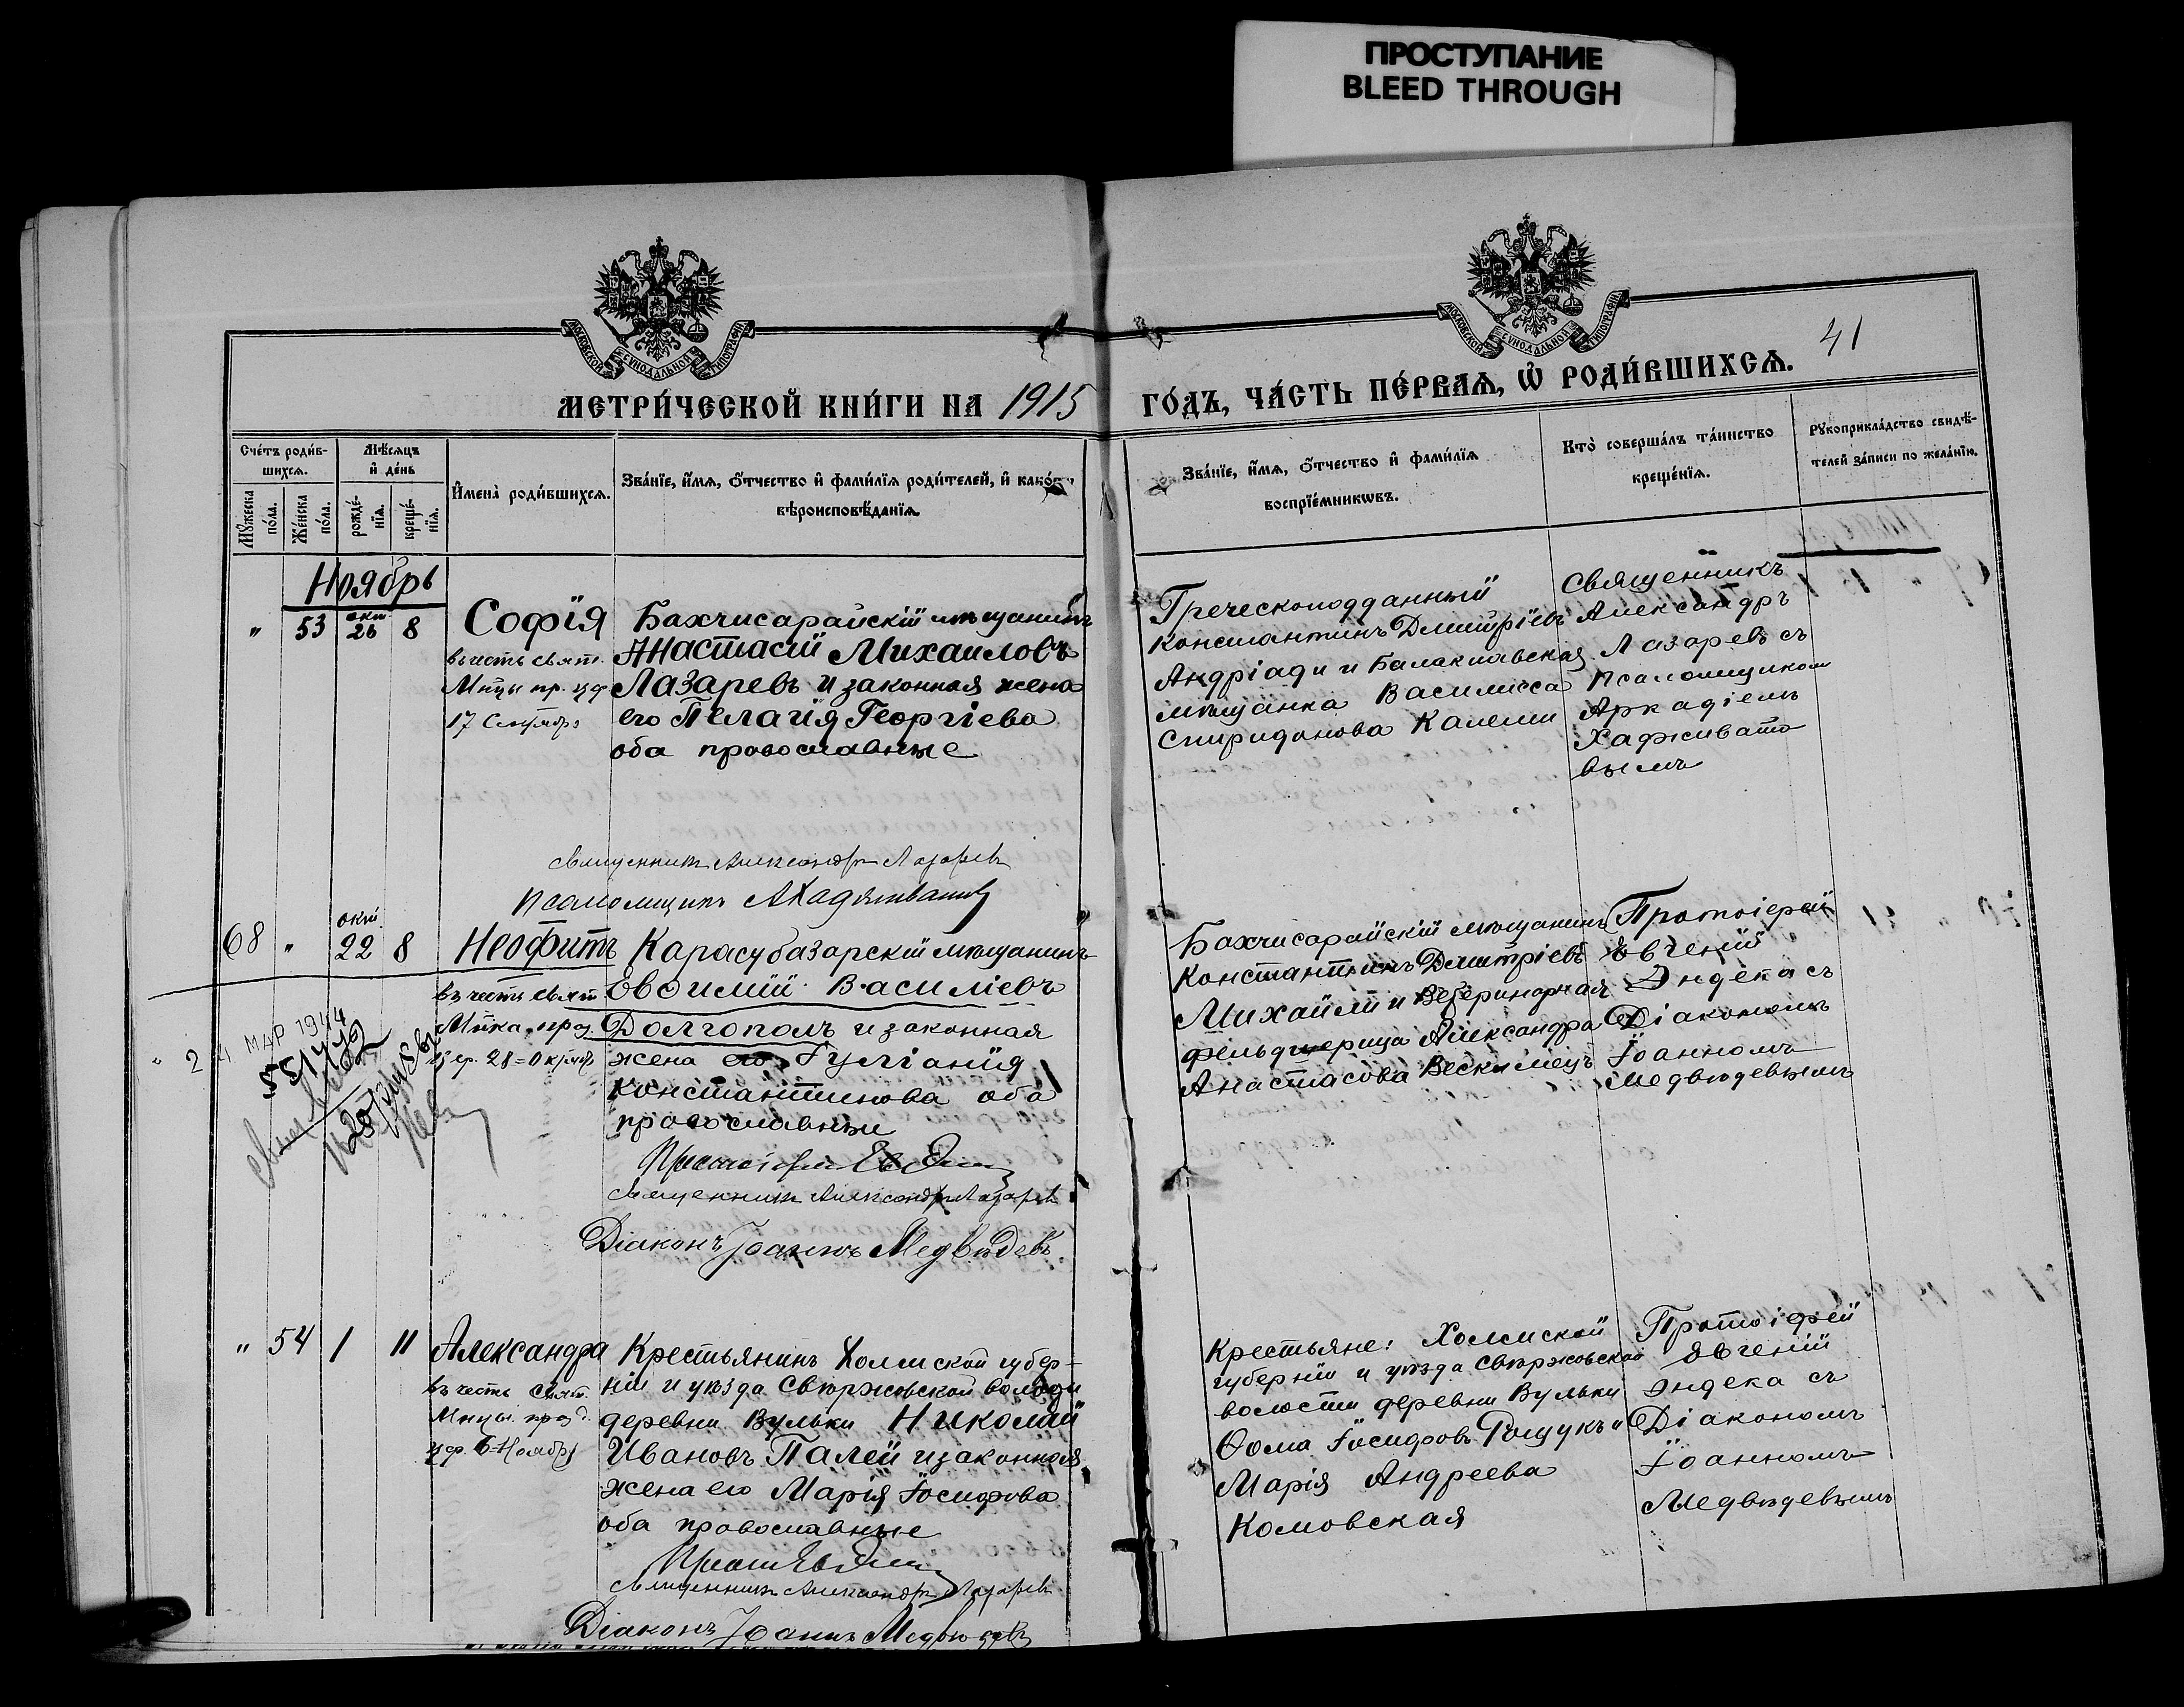 ПРОСТУПАНИЕ
BLEED THROUGH
МОСКОВСКОЙ СѴНОДАЛЬНОЙ ТИПОГРАФІИ
МОСКОВСКОЙ СѴНОДАЛЬНОЙ ТИПОГРАФІИ
41
МЕТРИ́ЧЕСКОЙ КНИ́ГИ НА 1915
ГО́ДЪ, ЧА́СТЬ ПЕ́РВАѦ, Ѡ҆ РОДИ́ВШИХСѦ.
Сче́тъ роди́в-
шихсѧ.
Мѣ́сѧцъ
и҆ де́нь
Мꙋ́жеска
по́ла.
Же́нска
по́ла.
рожде́-
нїѧ.
креще́-
нїѧ.
И҆мена̀ роди́вшихсѧ.
Зва́нїе, и҆́мѧ, ѻ҆́тчество и҆ фами́лїѧ роди́телей, и҆ како́гѡ
вѣроисповѣ́данїѧ.
Зва́нїе, и҆́мѧ, ѻ҆́тчество и҆ фами́лїѧ
воспрїе́мникѡвъ.
Кто̀ соверша́лъ та́инство
креще́нїѧ.
Рꙋкоприкла́дство свидѣ́-
телей за́писи по жела́нїю.
Ноябрь
" 53 окт 26 8
Софія
въ честь свят.
Мцы пр. цр
17 Сентября
Бахчисарайскій мѣщанинъ
Анастасій Михаиловъ
Лазаревъ и законная жена
его Пелагія Георгіева
оба православные
Греческоподданный
Константинъ Дмитріевъ
Андріади и Балаклавская
мѣщанка Василисса
Спиридонова Калеми
Священникъ
Александръ
Лазаревъ съ
Псаломщиком
Аркадіемъ
Хадживато
вымъ
Священникъ Александръ Лазаревъ
Псаломщикъ
68 " окт 22 8
Неофитъ
въ честь свят
Мчка праз.
цер. 28 Октябр
Карасубазарскій мѣщанинъ
Евѳимій Василіевъ
Долгополъ и законная
жена его Гуліанія
Константинова оба
православные
Бахчисарайскій мѣщанинъ
Константинъ Дмитріевъ
Михайли и Ветеринарная
фельдшерица Александра
Анастасова
Протоіерей
Евгеній
Эндека съ
Діакономъ
Іоанномъ
Медвѣдевымъ
24 МАР 1944
Протоіерей
Священникъ Александръ Лазаревъ
Діаконъ Іоаннъ Медвѣдевъ
" 54 1 11
Александра
въ честь свят
Мцы праз.
цер. 6 Ноября
Крестьянинъ Холмской губер-
ніи и уѣзда Свержовской волости
деревни Вульки Николай
Ивановъ Палей и законная
жена его Марія Іосифова
оба православные
Крестьяне: Холмской
губерніи и уѣзда Свержовской
волости деревни Вульки
Ѳома Іосифовъ Рощукъ и
Марія Андреева
Комовская
Протоіерей
Евгеній
Эндека съ
Діакономъ
Іоанномъ
Медвѣдевымъ
Священникъ Александръ Лазаревъ
Діаконъ Іоаннъ Медвѣдевъ